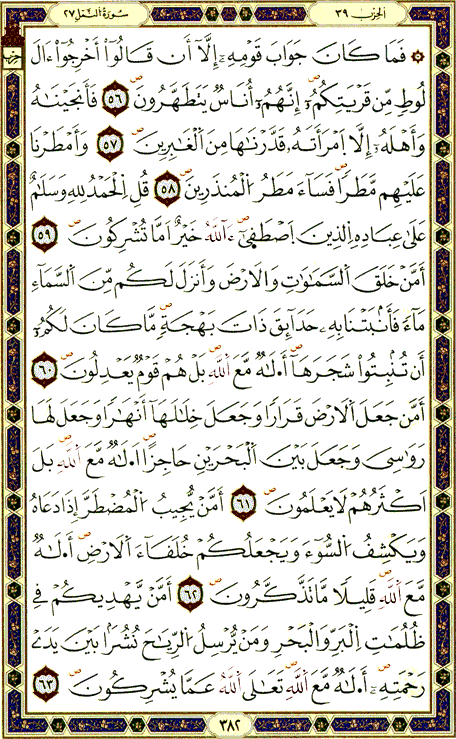 الحِزْبُ ٣٩
سُورَةُ النَّمْلِ ٢٧
۞ فَمَا كَانَ جَوَابَ قَوْمِهِۦٓ إِلَّآ أَن قَالُوٓا۟ أَخْرِجُوٓا۟ ءَالَ
لُوطٍ مِّن قَرْيَتِكُمُۥٓ إِنَّهُمُۥٓ أُنَاسٌ يَتَطَهَّرُونَ ٥٦ فَأَنجَيْنَٰهُ
وَأَهْلَهُۥٓ إِلَّا ٱمْرَأَتَهُۥ قَدَّرْنَٰهَا مِنَ ٱلْغَٰبِرِينَ ٥٧ وَأَمْطَرْنَا
عَلَيْهِم مَّطَرًا فَسَآءَ مَطَرُ ٱلْمُنذَرِينَ ٥٨ قُلِ ٱلْحَمْدُ لِلَّهِ وَسَلَٰمٌ
عَلَىٰ عِبَادِهِ ٱلَّذِينَ ٱصْطَفَىٰٓ ءَآللَّهُ خَيْرٌ أَمَّا تُشْرِكُونَ ٥٩
أَمَّنْ خَلَقَ ٱلسَّمَٰوَٰتِ وَٱلْأَرْضَ وَأَنزَلَ لَكُم مِّنَ ٱلسَّمَآءِ
مَآءً فَأَنۢبَتْنَا بِهِۦ حَدَآئِقَ ذَاتَ بَهْجَةٍ مَّا كَانَ لَكُمُۥٓ
أَن تُنۢبِتُوا۟ شَجَرَهَآ أَ۟لَٰهٌ مَّعَ ٱللَّهِ بَلْ هُمْ قَوْمٌ يَعْدِلُونَ ٦٠
أَمَّن جَعَلَ ٱلْأَرْضَ قَرَارًا وَجَعَلَ خِلَٰلَهَآ أَنْهَٰرًا وَجَعَلَ لَهَا
رَوَٰسِىَ وَجَعَلَ بَيْنَ ٱلْبَحْرَيْنِ حَاجِزًا أَ۟لَٰهٌ مَّعَ ٱللَّهِ بَلْ
أَكْثَرُهُمْ لَا يَعْلَمُونَ ٦١ أَمَّن يُجِيبُ ٱلْمُضْطَرَّ إِذَا دَعَاهُ
وَيَكْشِفُ ٱلسُّوٓءَ وَيَجْعَلُكُمْ خُلَفَآءَ ٱلْأَرْضِ أَ۟لَٰهٌ
مَّعَ ٱللَّهِ قَلِيلًا مَّا تَذَّكَّرُونَ ٦٢ أَمَّن يَهْدِيكُمْ فِى
ظُلُمَٰتِ ٱلْبَرِّ وَٱلْبَحْرِ وَمَن يُرْسِلُ ٱلرِّيَٰحَ نُشُرًۢا بَيْنَ يَدَىْ
رَحْمَتِهِۦٓ أَ۟لَٰهٌ مَّعَ ٱللَّهِ تَعَٰلَى ٱللَّهُ عَمَّا يُشْرِكُونَ ٦٣
٣٨٢